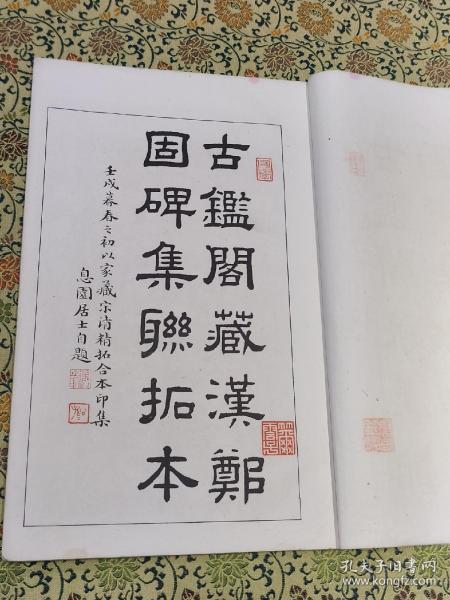 古鑑閣藏漢鄭
固碑集聯拓本
壬戌暮春之初以家藏宗清精拓合本印集
息園居士自題
孔夫子旧书网
www.kongfz.com